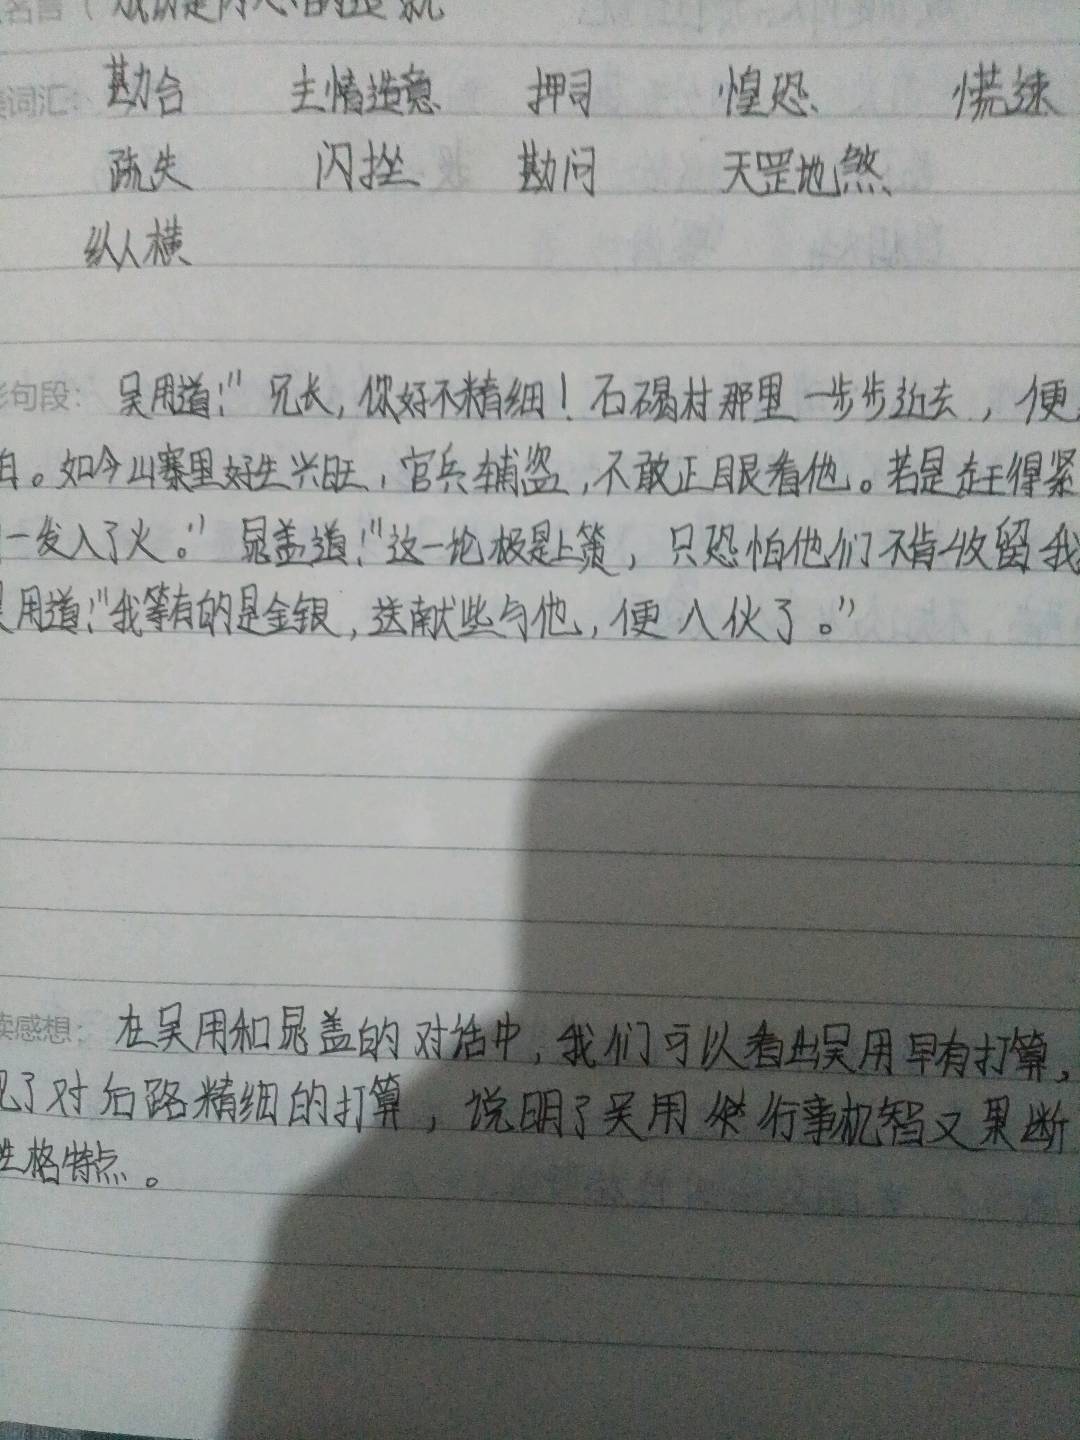 勘合 主情造意 押司 惶恐 慌速
词汇：
疏失 闪挫 勘问 天罡地煞
纵人横
句段： 吴用道：“兄长，你好不精细！石碣村那里一步步近去，便
。如今山寨里好生兴旺，官兵辅盗，不敢正眼看他。若是赶得紧
一发入了火。” 晁盖道：“这一论极是上策，只恐怕他们不肯收留我
用道：“我等有的是金银，送献些与他，便入伙了。”
感想： 在吴用和晁盖的对话中，我们可以看出吴用早有打算，
了对后路精细的打算，说明了吴用 行事机智又果断
性格特点。